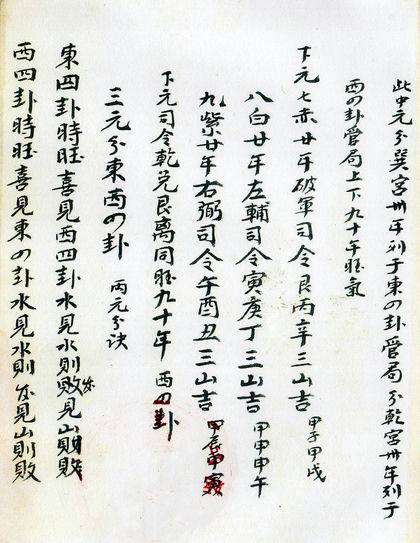 此中元分巽宮卅年列于東の卦管局分乾宮卅年列于
西の卦管局上下九十年旺氣
下元七赤廿年破軍司令艮丙辛三山吉 甲子甲戌
八白廿年左輔司令寅庚丁三山吉 甲申甲午
九紫廿年右弼司令午酉丑三山吉 甲辰甲寅
下元司令乾兌艮離同旺九十年 西四卦
三元分東西の卦 两元分诀
東四卦時旺喜見西四卦水見水則敗发見山則敗
西四卦時旺喜見東の卦水見水則发見山則敗